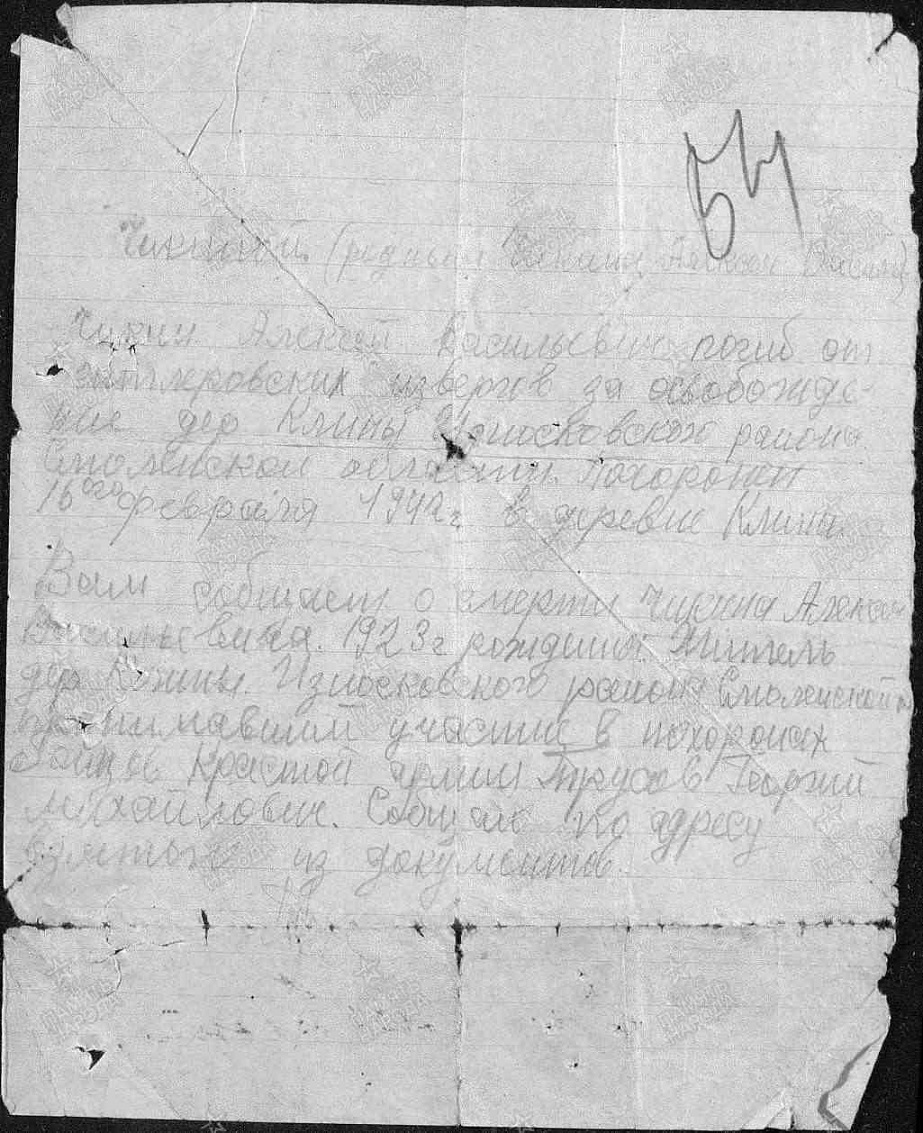 64
Чикиной (родным Чикина Алексея Василь)
Чикин Алексей Васильевич погиб от
гитлеровских извергов за освобожде-
ние дер Клины Износковского района
Смоленской области. Похоронен
16ого февраля 1942 г в деревне Клины.
Вам собщает о смерти Чикина Алексея
Васильевича. 1923 г рождения. Житель
дер Клины. Износковского района Смоленской
принимавший участие в похоронах
бойцов Красной армии Трусов Георгий
Михайлович. Собщаю по адресу
взятого из документов.